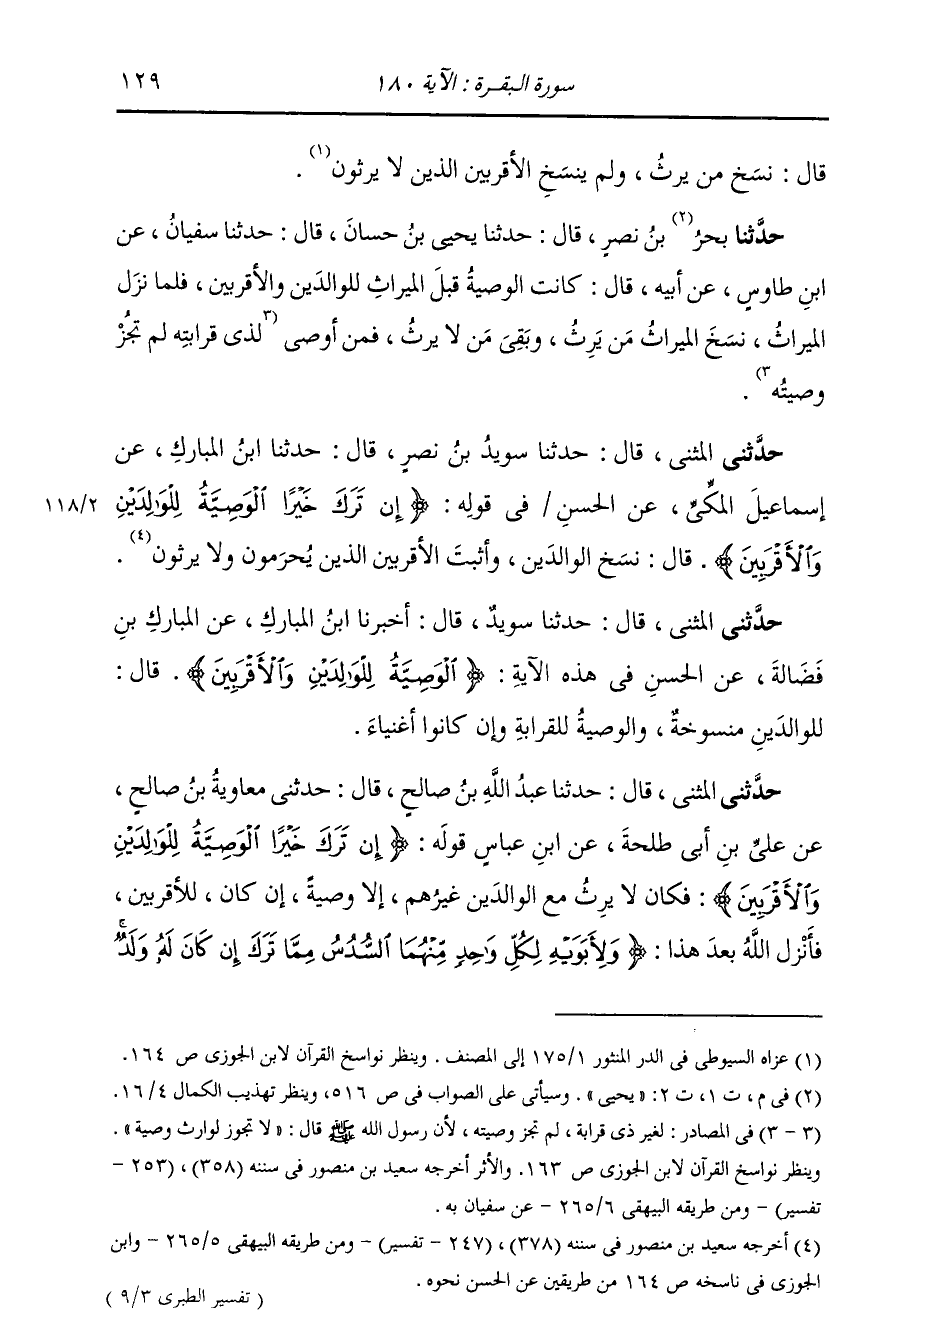 سورة البقرة : الآية ١٨٠ ١٢٩
قال : نسَخ من يرثُ ، ولم ينسَخِ الأقربين الذين لا يرثون(١) .
حدَّثنا بحرُ(٢) بنُ نصرٍ ، قال : حدثنا يحيى بنُ حسانَ ، قال : حدثنا سفيانُ ، عن
ابنِ طاوسٍ ، عن أبيه ، قال : كانت الوصيةُ قبلَ الميراثِ للوالدَين والأقربين ، فلما نزَل
الميراثُ ، نسَخَ الميراثُ مَن يَرِثُ ، وبَقِىَ مَن لا يرثُ ، فمن أوصى (٣لذى قرابتِه لم تجُزْ
وصيتُه٣) .
حدَّثنى المثنى ، قال : حدثنا سويدُ بنُ نصرٍ ، قال : حدثنا ابنُ المباركِ ، عن
إسماعيلَ المكِّىِّ ، عن الحسنِ / فى قولِه : ﴿ إِن تَرَكَ خَيْرًا ٱلْوَصِيَّةُ لِلْوَٰلِدَيْنِ ١١٨/٢
وَٱلْأَقْرَبِينَ ﴾ . قال : نسَخ الوالدَين ، وأثبتَ الأقربين الذين يُحرَمون ولا يرثون(٤) .
حدَّثنى المثنى ، قال : حدثنا سويدٌ ، قال : أخبرنا ابنُ المباركِ ، عن المباركِ بنِ
فَضَالةَ ، عن الحسنِ فى هذه الآيةِ : ﴿ ٱلْوَصِيَّةُ لِلْوَٰلِدَيْنِ وَٱلْأَقْرَبِينَ ﴾ . قال :
للوالدَينِ منسوخةٌ ، والوصيةُ للقرابةِ وإن كانوا أغنياءَ .
حدَّثنى المثنى ، قال : حدثنا عبدُ اللَّهِ بنُ صالحٍ ، قال : حدثنى معاويةُ بنُ صالحٍ ،
عن علىِّ بنِ أبى طلحةَ ، عن ابنِ عباسٍ قولَه : ﴿ إِن تَرَكَ خَيْرًا ٱلْوَصِيَّةُ لِلْوَٰلِدَيْنِ
وَٱلْأَقْرَبِينَ ﴾ : فكان لا يرِثُ مع الوالدَين غيرُهم ، إلا وصيةً ، إن كان ، للأقربين ،
فأَنْزل اللَّهُ بعدَ هذا : ﴿ وَلِأَبَوَيْهِ لِكُلِّ وَٰحِدٍ مِّنْهُمَا ٱلسُّدُسُ مِمَّا تَرَكَ إِن كَانَ لَهُۥ وَلَدٌۚ
(١) عزاه السيوطى فى الدر المنثور ١٧٥/١ إلى المصنف . وينظر نواسخ القرآن لابن الجوزى ص ١٦٤ .
(٢) فى م ، ت ١ ، ت ٢ : « يحيى » . وسيأتى على الصواب فى ص ٥١٦ ، وينظر تهذيب الكمال ١٦/٤ .
(٣ - ٣) فى المصادر : لغير ذى قرابة ، لم تجز وصيته ، لأن رسول الله ﷺ قال : « لا تجوز لوارث وصية » .
وينظر نواسخ القرآن لابن الجوزى ص ١٦٣ . والأثر أخرجه سعيد بن منصور فى سننه (٣٥٨) ، (٢٥٣ -
تفسير) - ومن طريقه البيهقى ٢٦٥/٦ - عن سفيان به .
(٤) أخرجه سعيد بن منصور فى سننه (٣٧٨) ، (٢٤٧ - تفسير) - ومن طريقه البيهقى ٢٦٥/٥ - وابن
الجوزى فى ناسخه ص ١٦٤ من طريقين عن الحسن نحوه .
( تفسير الطبرى ٩/٣ )